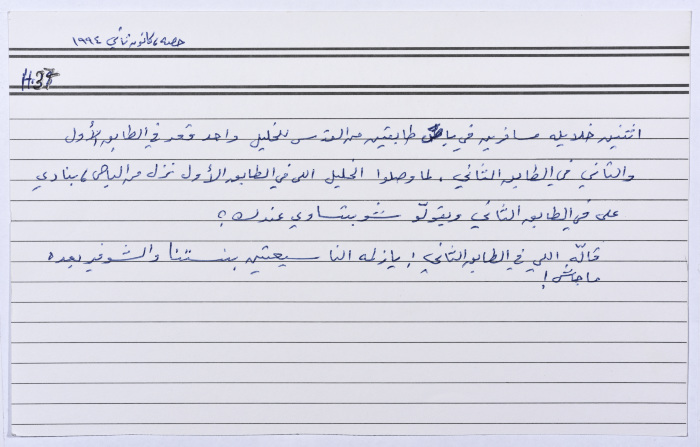 حمص، كانون ثاني ١٩٩٤
H.38
اثنين خلايله مسافرين في باص طابقين من القدس للخليل واحد قعد في الطابق الأول
والثاني في الطابق الثاني. لما وصلوا الخليل اللي في الطابق الأول نزل من الباص، بنادي
على في الطابق الثاني وبقولّو شو بتساوي عندك؟
قالّه اللي في الطابق الثاني! يا زلمه النا سيعتين بنستنا والشوفير بعده
ما جاش!